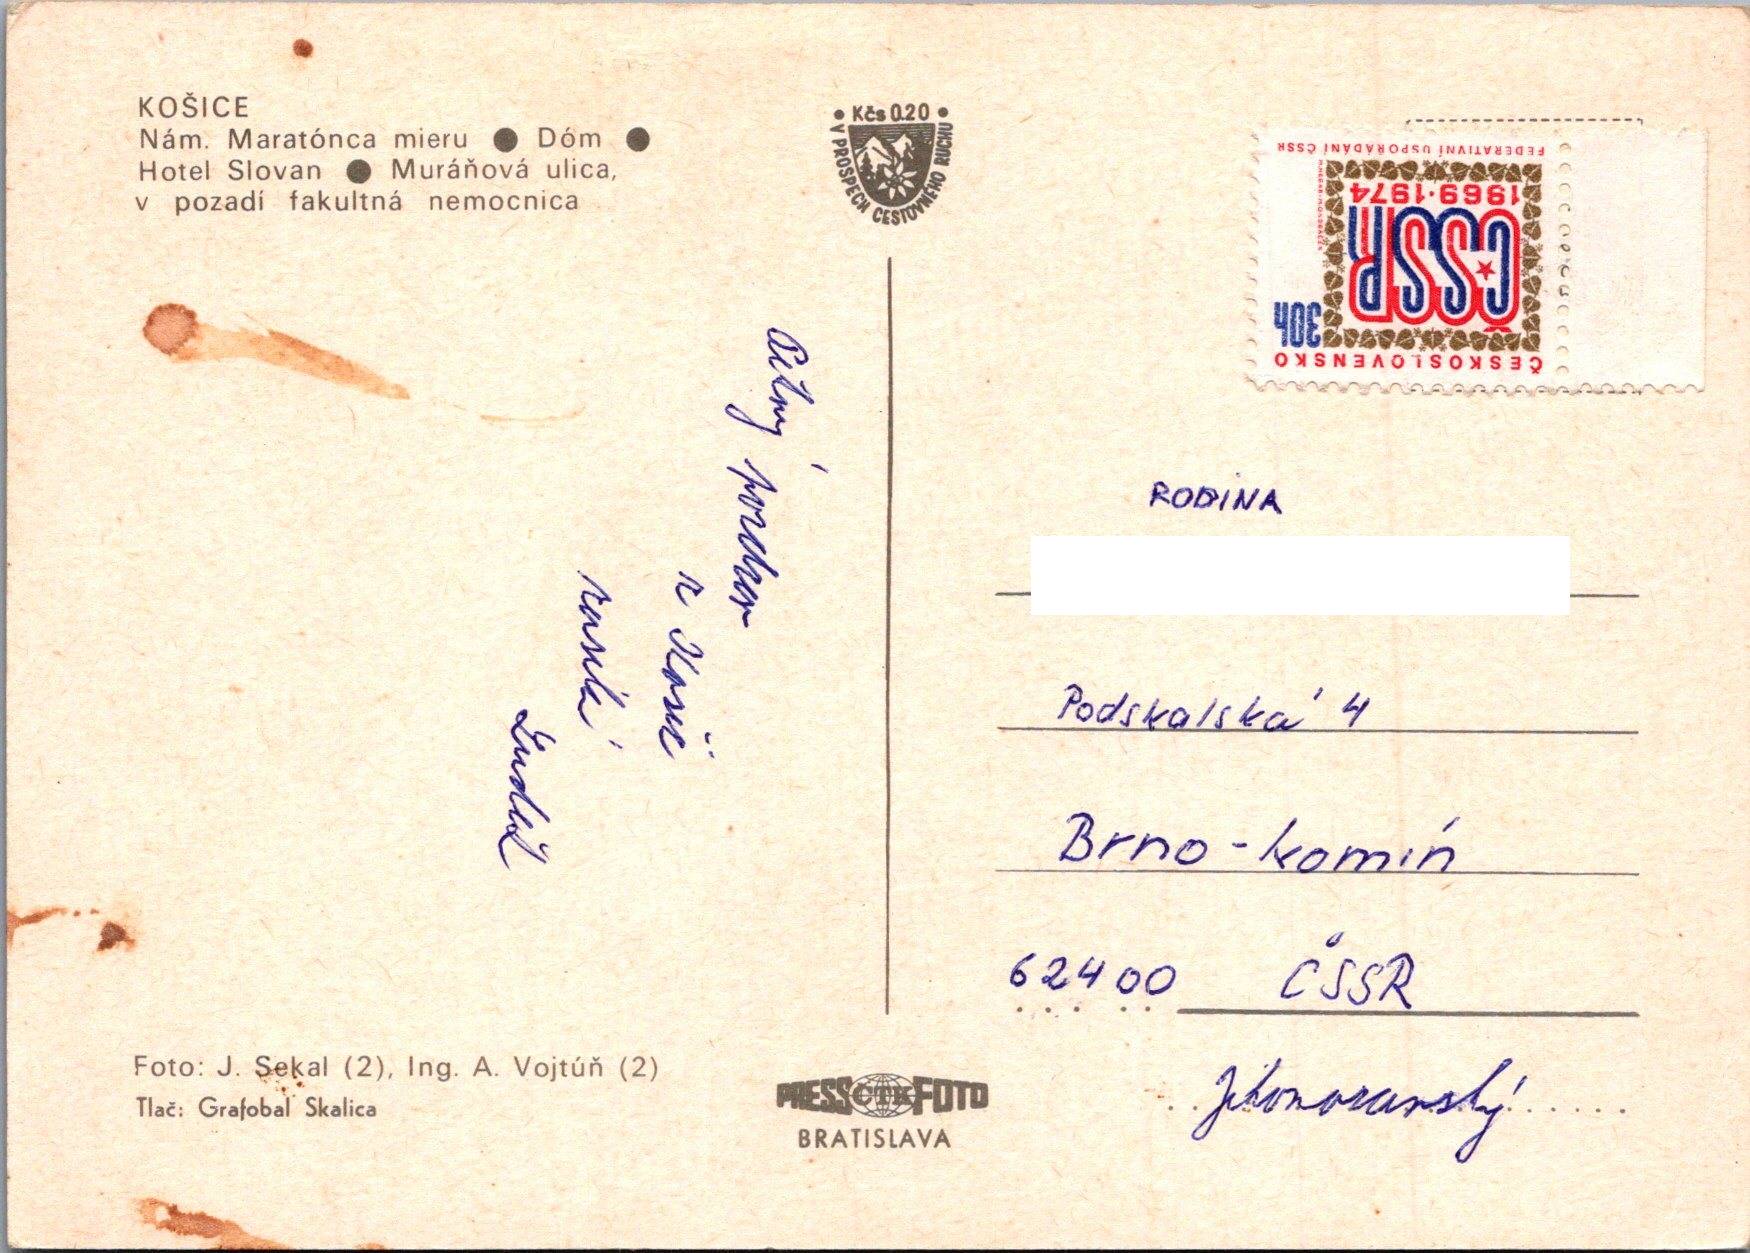 KOŠICE
Nám. Maratónca mieru ● Dóm ●
Hotel Slovan ● Muráňová ulica,
v pozadí fakultná nemocnica
• Kčs 0.20 •
V PROSPECH CESTOVNÉHO RUCHU
ČESKOSLOVENSKO
30h
ČSSR
1969·1974
FEDERATIVNÍ USPOŘÁDÁNÍ ČSSR
pozdrav
z Košic
zasílá
Luděk
RODINA
Podskalská 4
Brno-Komín
62400 ČSSR
Jihomoravský
Foto: J. Sekal (2), Ing. A. Vojtúň (2)
Tlač: Grafobal Skalica
PRESS ČTK FOTO
BRATISLAVA